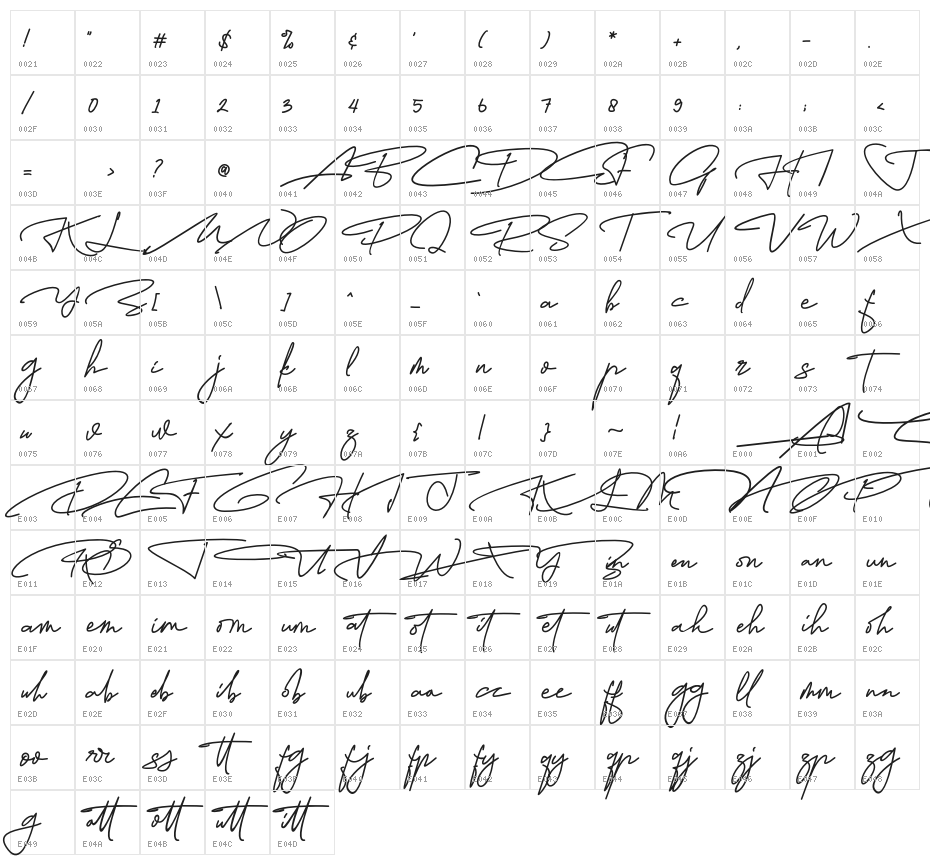 ! " # $ % & ' ( ) * + , - .
0021 0022 0023 0024 0025 0026 0027 0028 0029 002A 002B 002C 002D 002E
/ 0 1 2 3 4 5 6 7 8 9 : ; <
002F 0030 0031 0032 0033 0034 0035 0036 0037 0038 0039 003A 003B 003C
= > ? @ A B C D E F G H I J
003D 003E 003F 0040 0041 0042 0043 0044 0045 0046 0047 0048 0049 004A
K L M N O P Q R S T U V W X
004B 004C 004D 004E 004F 0050 0051 0052 0053 0054 0055 0056 0057 0058
Y Z [ \ ] ^ _ ` a b c d e f
0059 005A 005B 005C 005D 005E 005F 0060 0061 0062 0063 0064 0065 0066
g h i j k l m n o p q r s t
0067 0068 0069 006A 006B 006C 006D 006E 006F 0070 0071 0072 0073 0074
u v w x y z { | } ~ ¦ A
0075 0076 0077 0078 0079 007A 007B 007C 007D 007E 00A6 E000 E001 E002
D E F G H I J K L M N O P
E003 E004 E005 E006 E007 E008 E009 E00A E00B E00C E00D E00E E00F E010
R S T U V W X Y in en on an un
E011 E012 E013 E014 E015 E016 E017 E018 E019 E01A E01B E01C E01D E01E
am em im om um at ot it et ut ah eh ih oh
E01F E020 E021 E022 E023 E024 E025 E026 E027 E028 E029 E02A E02B E02C
uh ab eb ib ob ub aa cc ee ff gg ll mm nn
E02D E02E E02F E030 E031 E032 E033 E034 E035 E036 E037 E038 E039 E03A
oo rr ss tt fg fj fp fy qy qp qj zj zp zg
E03B E03C E03D E03E E03F E040 E041 E042 E043 E044 E045 E046 E047 E048
g att ott utt itt
E049 E04A E04B E04C E04D